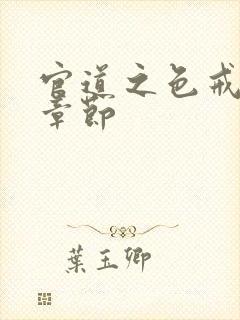 官道之色戒
章節
葉玉卿